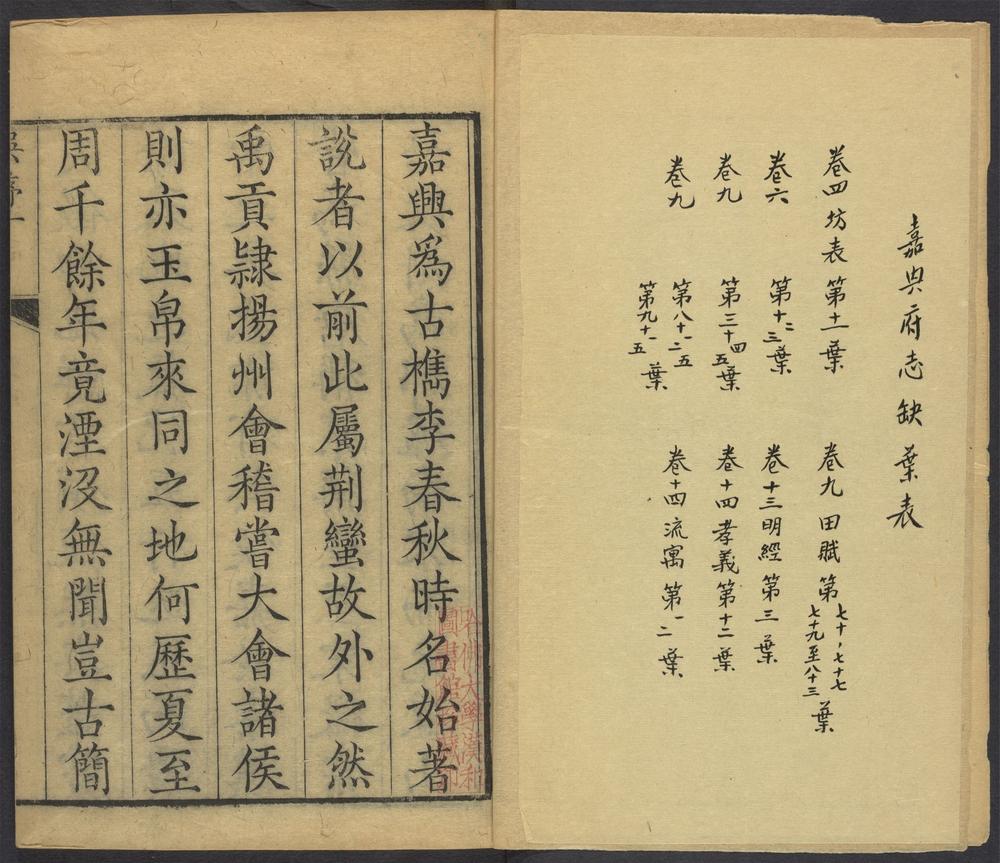 嘉興府志缺葉表
卷四坊表第十一葉
卷六第十二三葉
卷九第三十四五葉
卷九第八十一二五
第九十一五葉
卷九田賦第七十,七十七
七十九至八十三葉
卷十三明經第三葉
卷十四孝義第十二葉
卷十四流寓第一二葉
嘉興為古檇李春秋時名始著
說者以前此屬荆蠻故外之然
禹貢隸揚州會稽嘗大會諸侯
則亦玉帛來同之地何歷夏至
周千餘年竟湮沒無聞豈古簡
吳序一
哈佛大學漢和
圖書館珍藏印